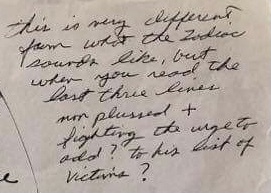 this is very different
from what the Zodiac
sounds like, but
when you read the
last three lines
non plussed +
fighting the urge to
add ? to his list of
victims ?